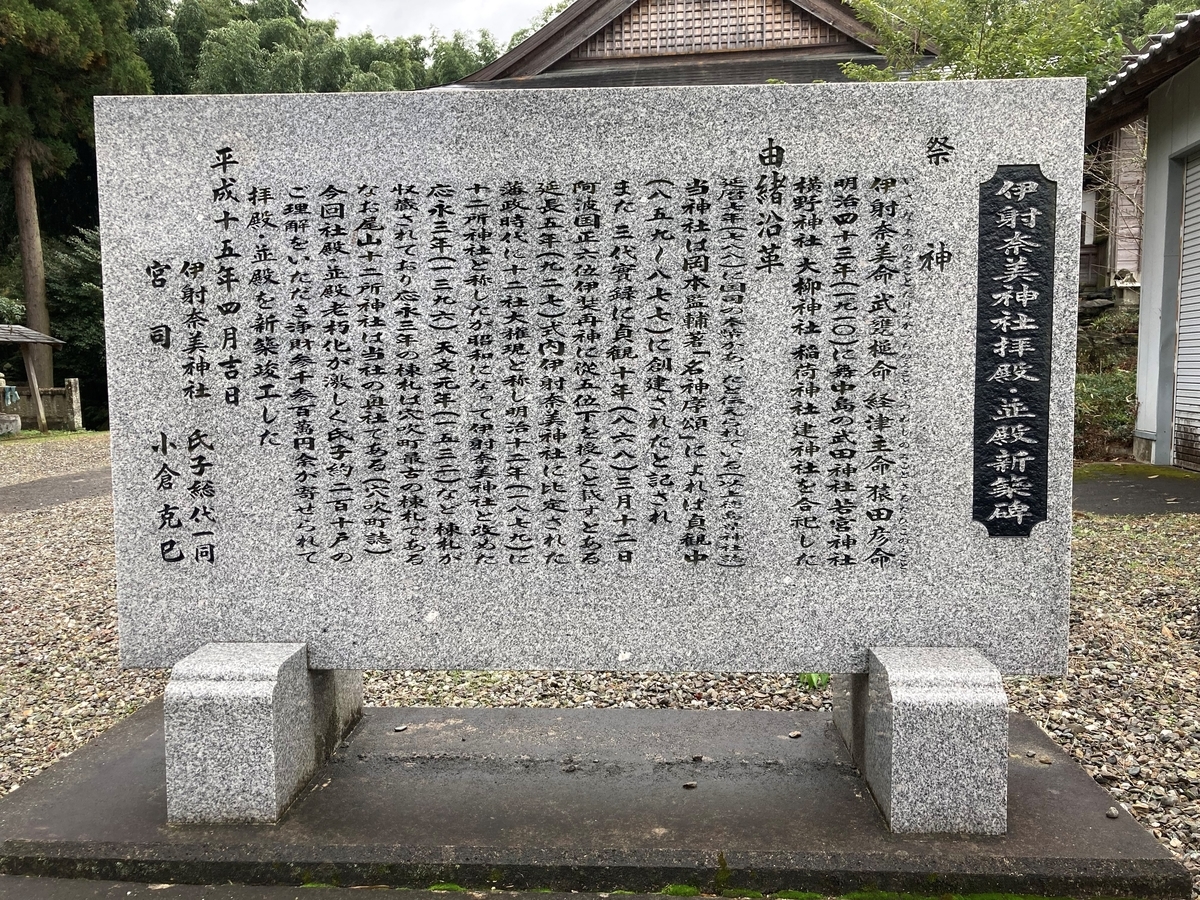 伊射奈美神社拝殿・並殿新築碑
祭神
伊射奈美命 武甕槌命 経津主命 猿田彦命
明治四十三年(一九一〇)に舞中島の武田神社 若宮神社
横野神社 大柳神社 稲荷神社 建神社を合祀した
由緒沿革
当神社は岡本監輔著「名神序頌」によれば貞観中
(八五九〜八七七)に創建されたと記され
また 三代實録に貞観十年(八六八)三月十二日
阿波国正六位伊射奈美神に従五位下を授くと氏すとある
延長五年(九二七)式内伊射奈美神社に比定された
藩政時代に十二社大権現と称し明治十二年(一八七九)に
十二所神社と称したが昭和になって伊射奈美神社と改めた
応永三年(一三九六)天文元年(一五三二)など棟札が
収蔵されており応永三年の棟札は穴吹町最古の棟札である
なお尾山十二所神社は当社の奥社である(穴吹町誌)
今回社殿 並殿老朽化が激しく氏子約二百十戸の
ご理解をいただき浄財参千参百萬円余が寄せられて
拝殿・並殿を新築竣工した
平成十五年四月吉日
伊射奈美神社 氏子総代一同
宮司 小倉克巳